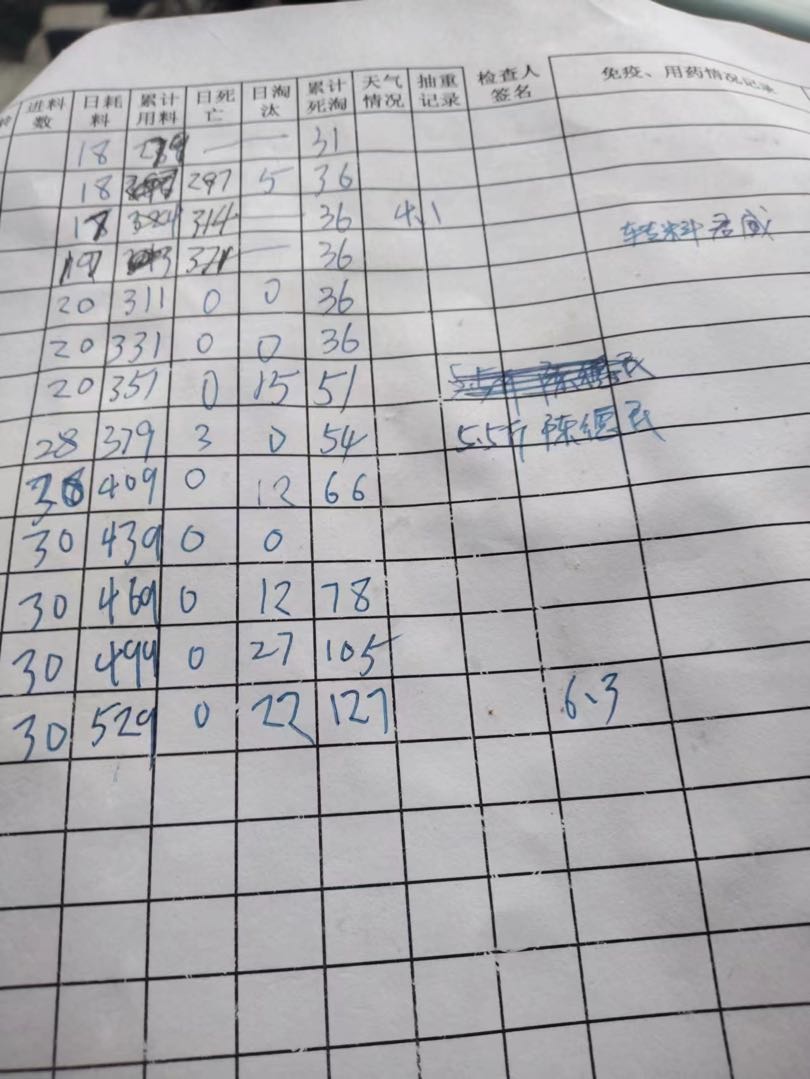 进料数 日耗料 累计用料 日死亡 日淘汰 累计死淘 天气情况 抽重记录 检查人签名 免疫、用药情况记录
18 — — 31
18 297 5 36
18 314 — 36 4.1 转料君威
19 — 36
20 311 0 0 36
20 331 0 0 36
20 351 0 15 51
28 379 3 0 54 5.5斤 陈德民
30 409 0 12 66
30 439 0 0
30 469 0 12 78
30 499 0 27 105
30 529 0 22 127 6.3